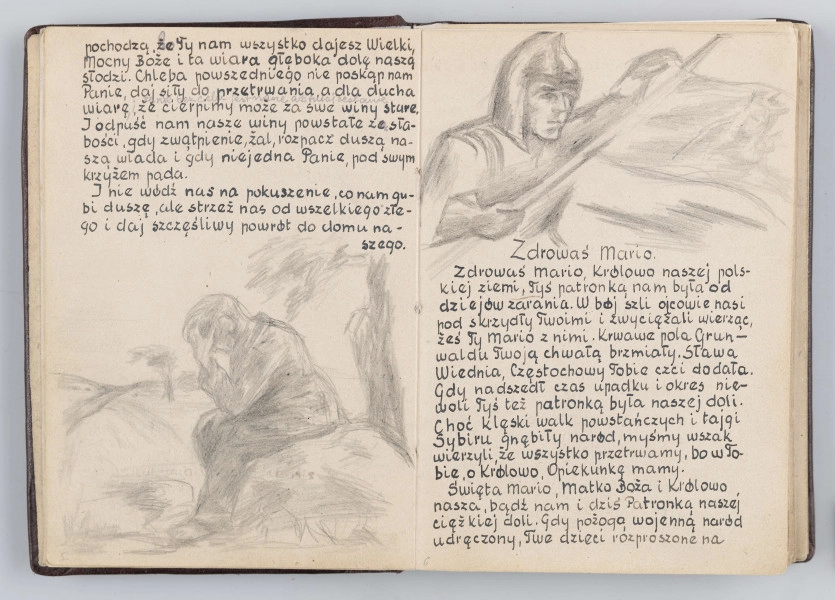 pochodzą, że Ty nam wszystko dajesz Wielki,
Mocny Boże i ta wiara głęboka dolę naszą
słodzi. Chleba powszedniego nie poskąp nam
Panie, daj siły do przetrwania, a dla ducha
wiarę, że cierpimy może za swe winy stare.
I odpuść nam nasze winy powstałe ze sła-
bości, gdy zwątpienie, żal, rozpacz duszą na-
szą włada i gdy niejedna Panie, pod swym
krzyżem pada.
I nie wódź nas na pokuszenie, co nam gu-
bi duszę, ale strzeż nas od wszelkiego złe-
go i daj szczęśliwy powrót do domu na-
szego.
Zdrowaś Mario.
Zdrowaś Mario, Królowo naszej pols-
kiej ziemi, Tyś patronką nam była od
dziejów zarania. W bój szli ojcowie nasi
pod skrzydły Twoimi i zwyciężali wierząc,
żeś Ty Mario z nimi. Krwawe pola Grun-
waldu Twoją chwałą brzmiały. Sława
Wiednia, Częstochowy Tobie czci dodała.
Gdy nadszedł czas upadku i okres nie-
woli Tyś też patronką była naszej doli.
Choć klęski walk powstańczych i tajgi
Sybiru gnębiły naród, myśmy wszak
wierzyli, że wszystko przetrwamy, bo w To-
bie, o Królowo, Opiekunkę mamy.
Święta Mario, Matko Boża i Królowo
nasza, bądź nam i dziś Patronką naszej
ciężkiej doli. Gdy pożogą wojenną naród
udręczony, Twe dzieci rozproszone na